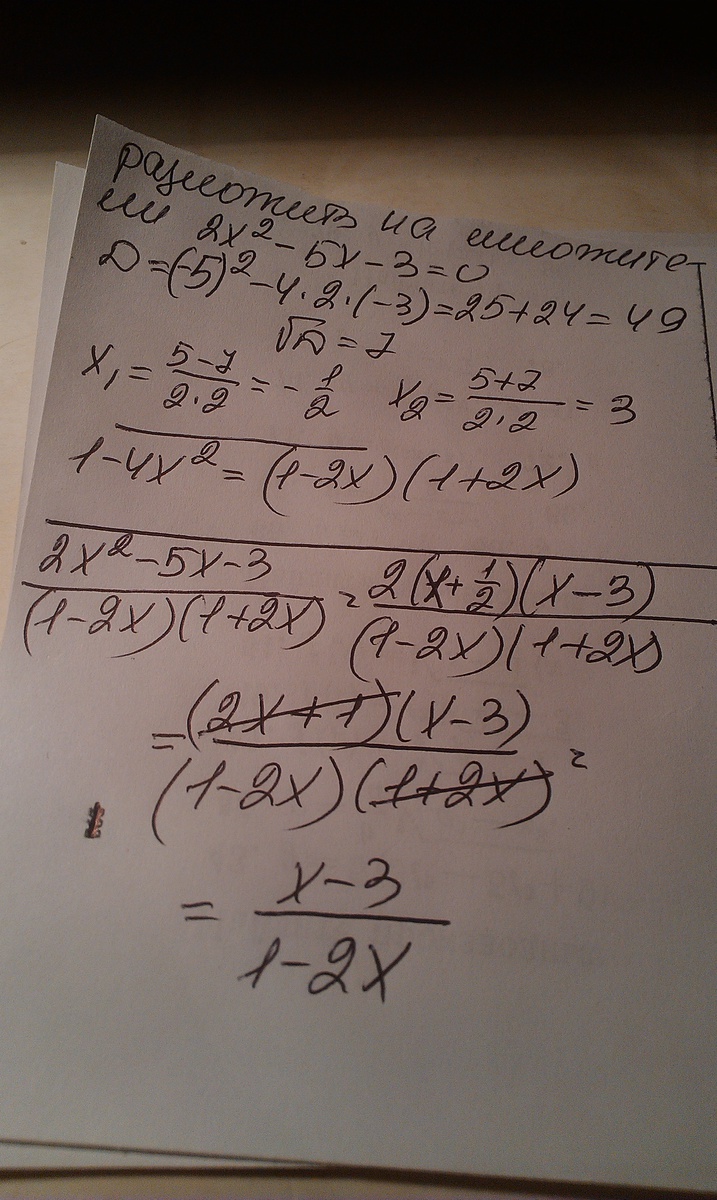 разложить на множите-
ли 2x² - 5x - 3 = 0
D = (-5)² - 4 · 2 · (-3) = 25 + 24 = 49
√D = 7
x₁ = (5-7)/(2·2) = -1/2   x₂ = (5+7)/(2·2) = 3
1 - 4x² = (1-2x)(1+2x)
(2x² - 5x - 3)/((1-2x)(1+2x)) = (2(x+1/2)(x-3))/((1-2x)(1+2x))
= ((2x+1)(x-3))/((1-2x)(1+2x)) =
= (x-3)/(1-2x)